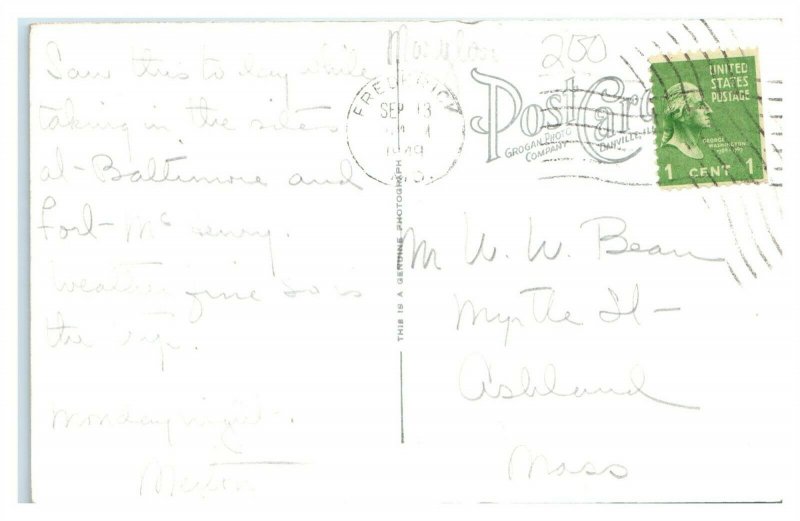 Saw this to day while
taking in the sites
at Baltimore and
Fort Mc Henry.
Weather fine so is
the trip.
Monday night.
Maryland
200
FREDERICK
SEP 13
1949
Post Card
GROGAN PHOTO
COMPANY
DANVILLE, ILL.
UNITED
STATES
POSTAGE
GEORGE
WASHINGTON
1 CENT 1
THIS IS A GENUINE PHOTOGRAPH
M W. W. Bean
Myrtle St
Ashland
Mass